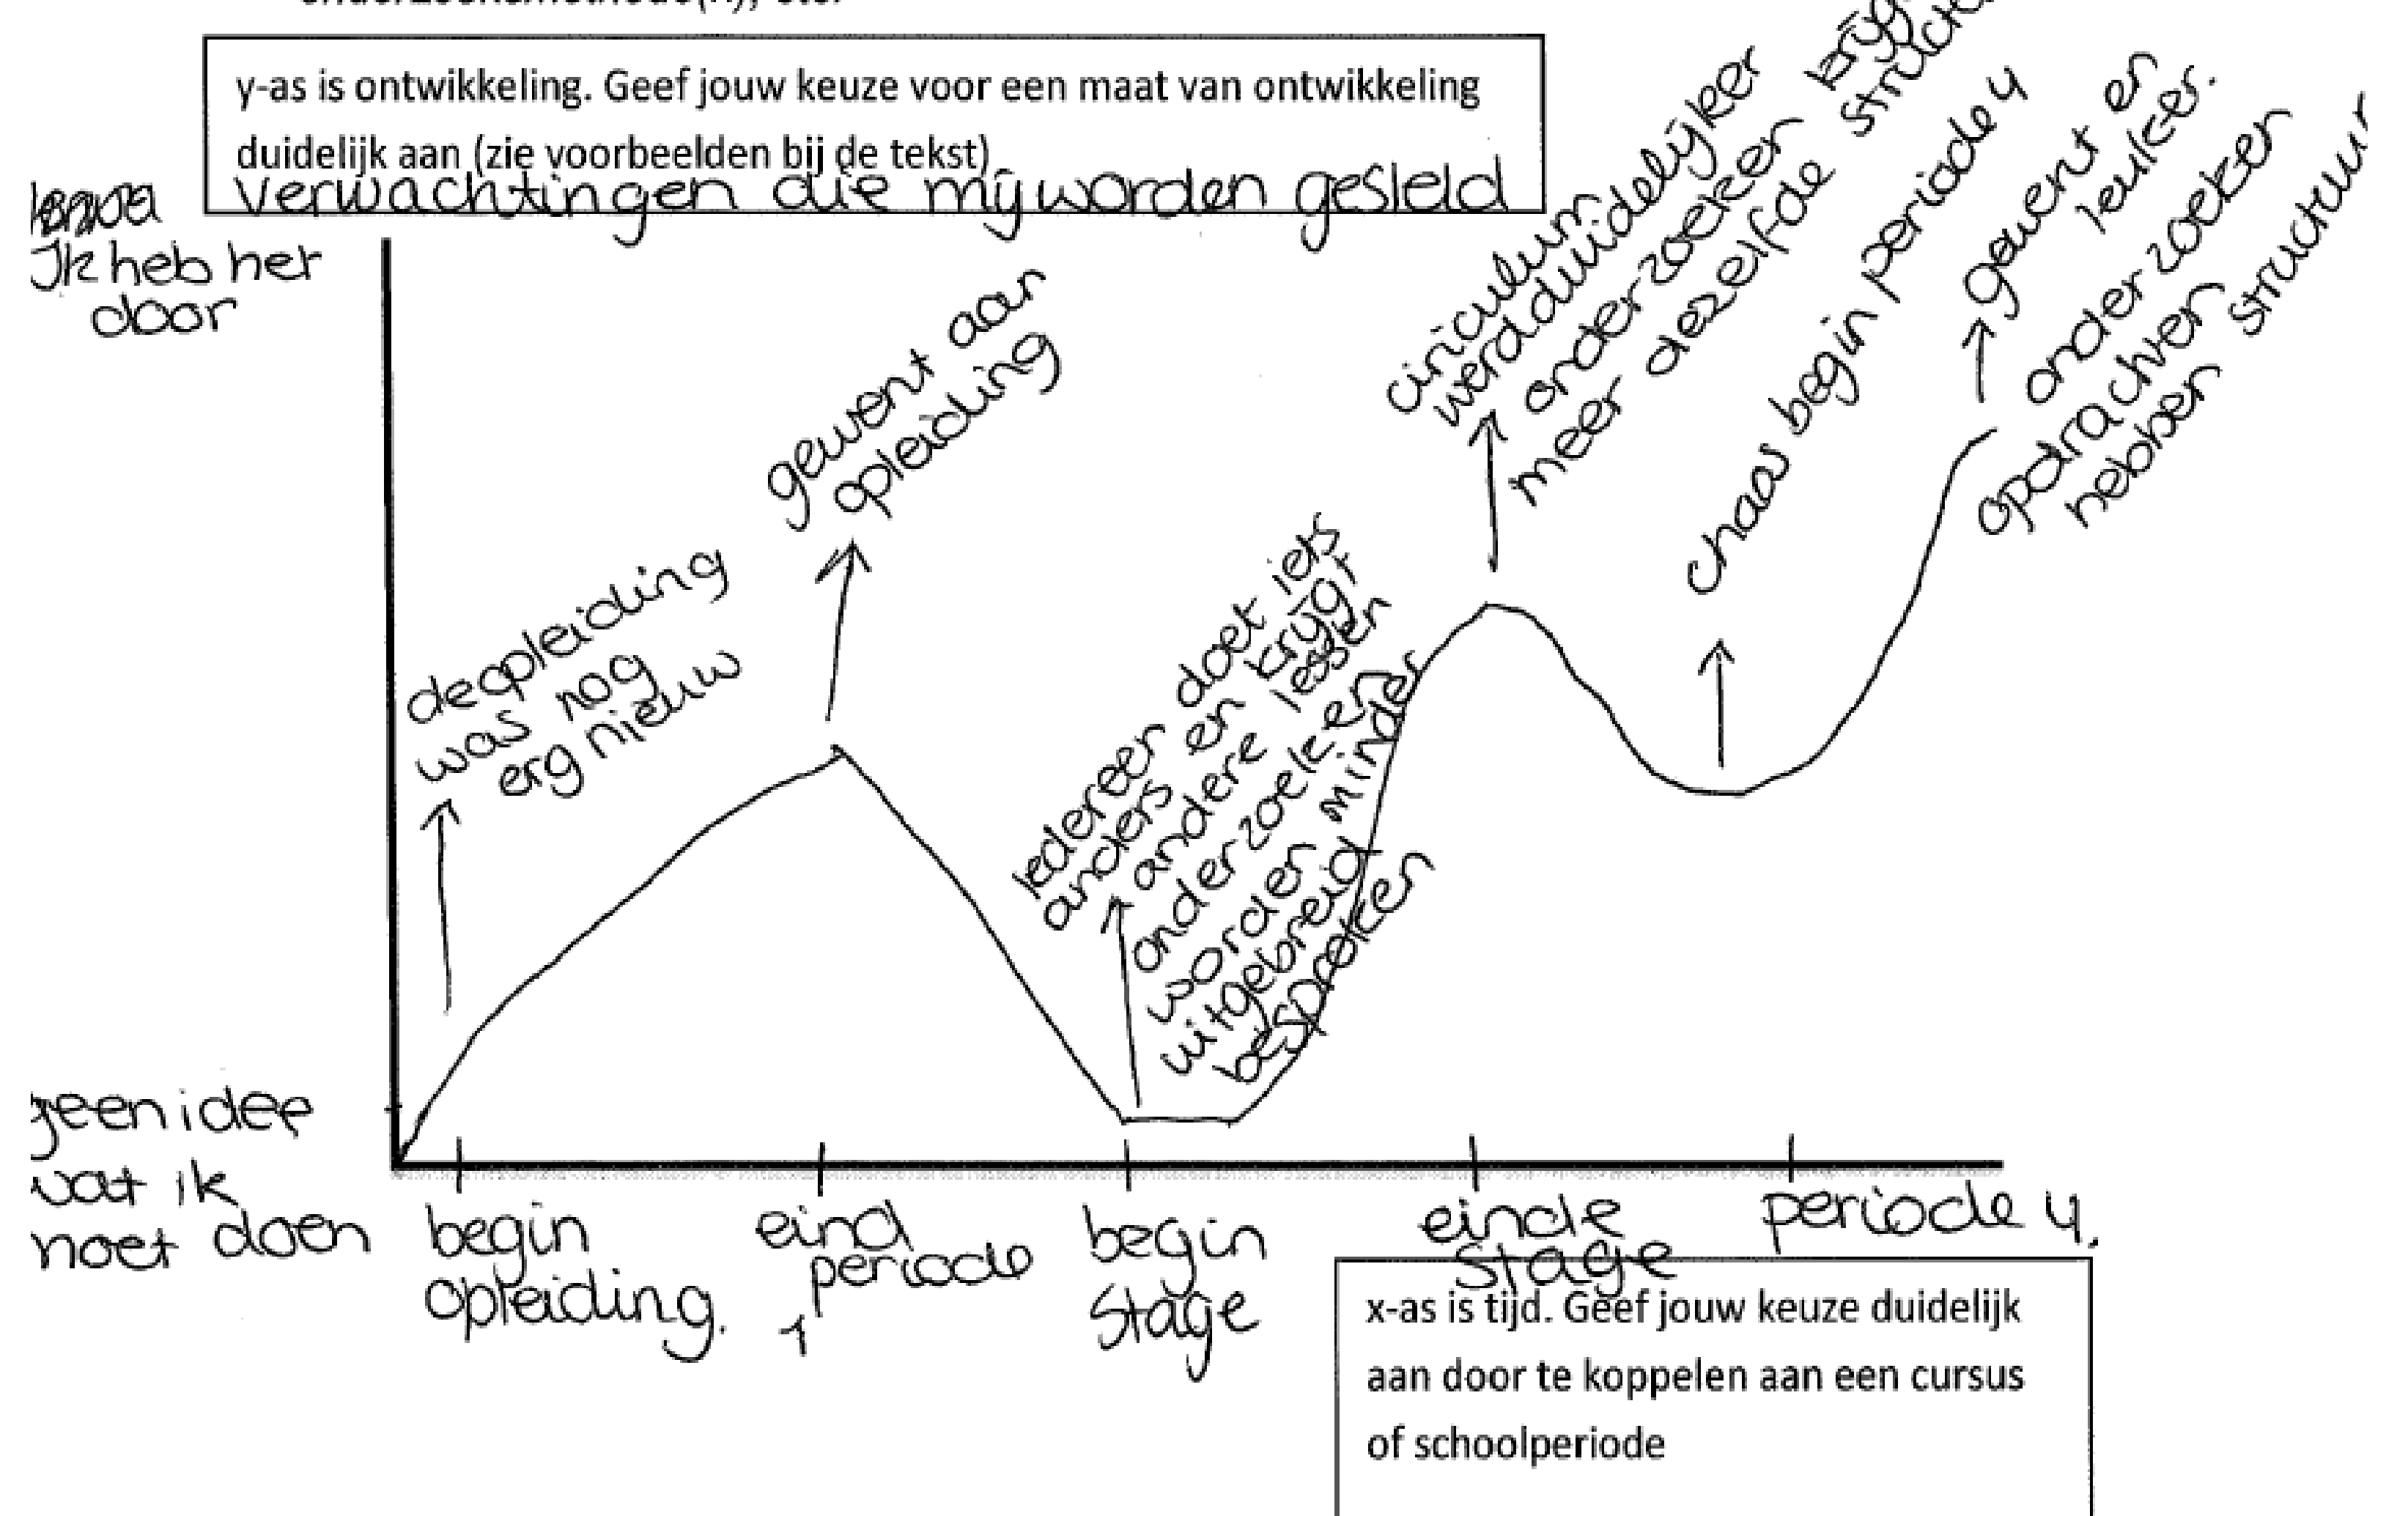 y-as is ontwikkeling. Geef jouw keuze voor een maat van ontwikkeling
duidelijk aan (zie voorbeelden bij de tekst)
verwachtingen die mij worden gesteld
Ik heb het
door
geen idee
wat ik
moet doen
de opleiding
was nog
erg nieuw
gewent aan
opleiding
iedereen doet iets
anders en krijgt
andere lessen
onderzoeken
worden minder
uitgebreid
besproken
ciriculum
werd duidelijker
onderzoeken
meer dezelfde
chaos begin periode 4
gewent en
leuker.
onderzoeken
opdrachten
hebben structuur
begin
opleiding.
eind
periode
1
begin
stage
einde
stage
periode 4.
x-as is tijd. Geef jouw keuze duidelijk
aan door te koppelen aan een cursus
of schoolperiode